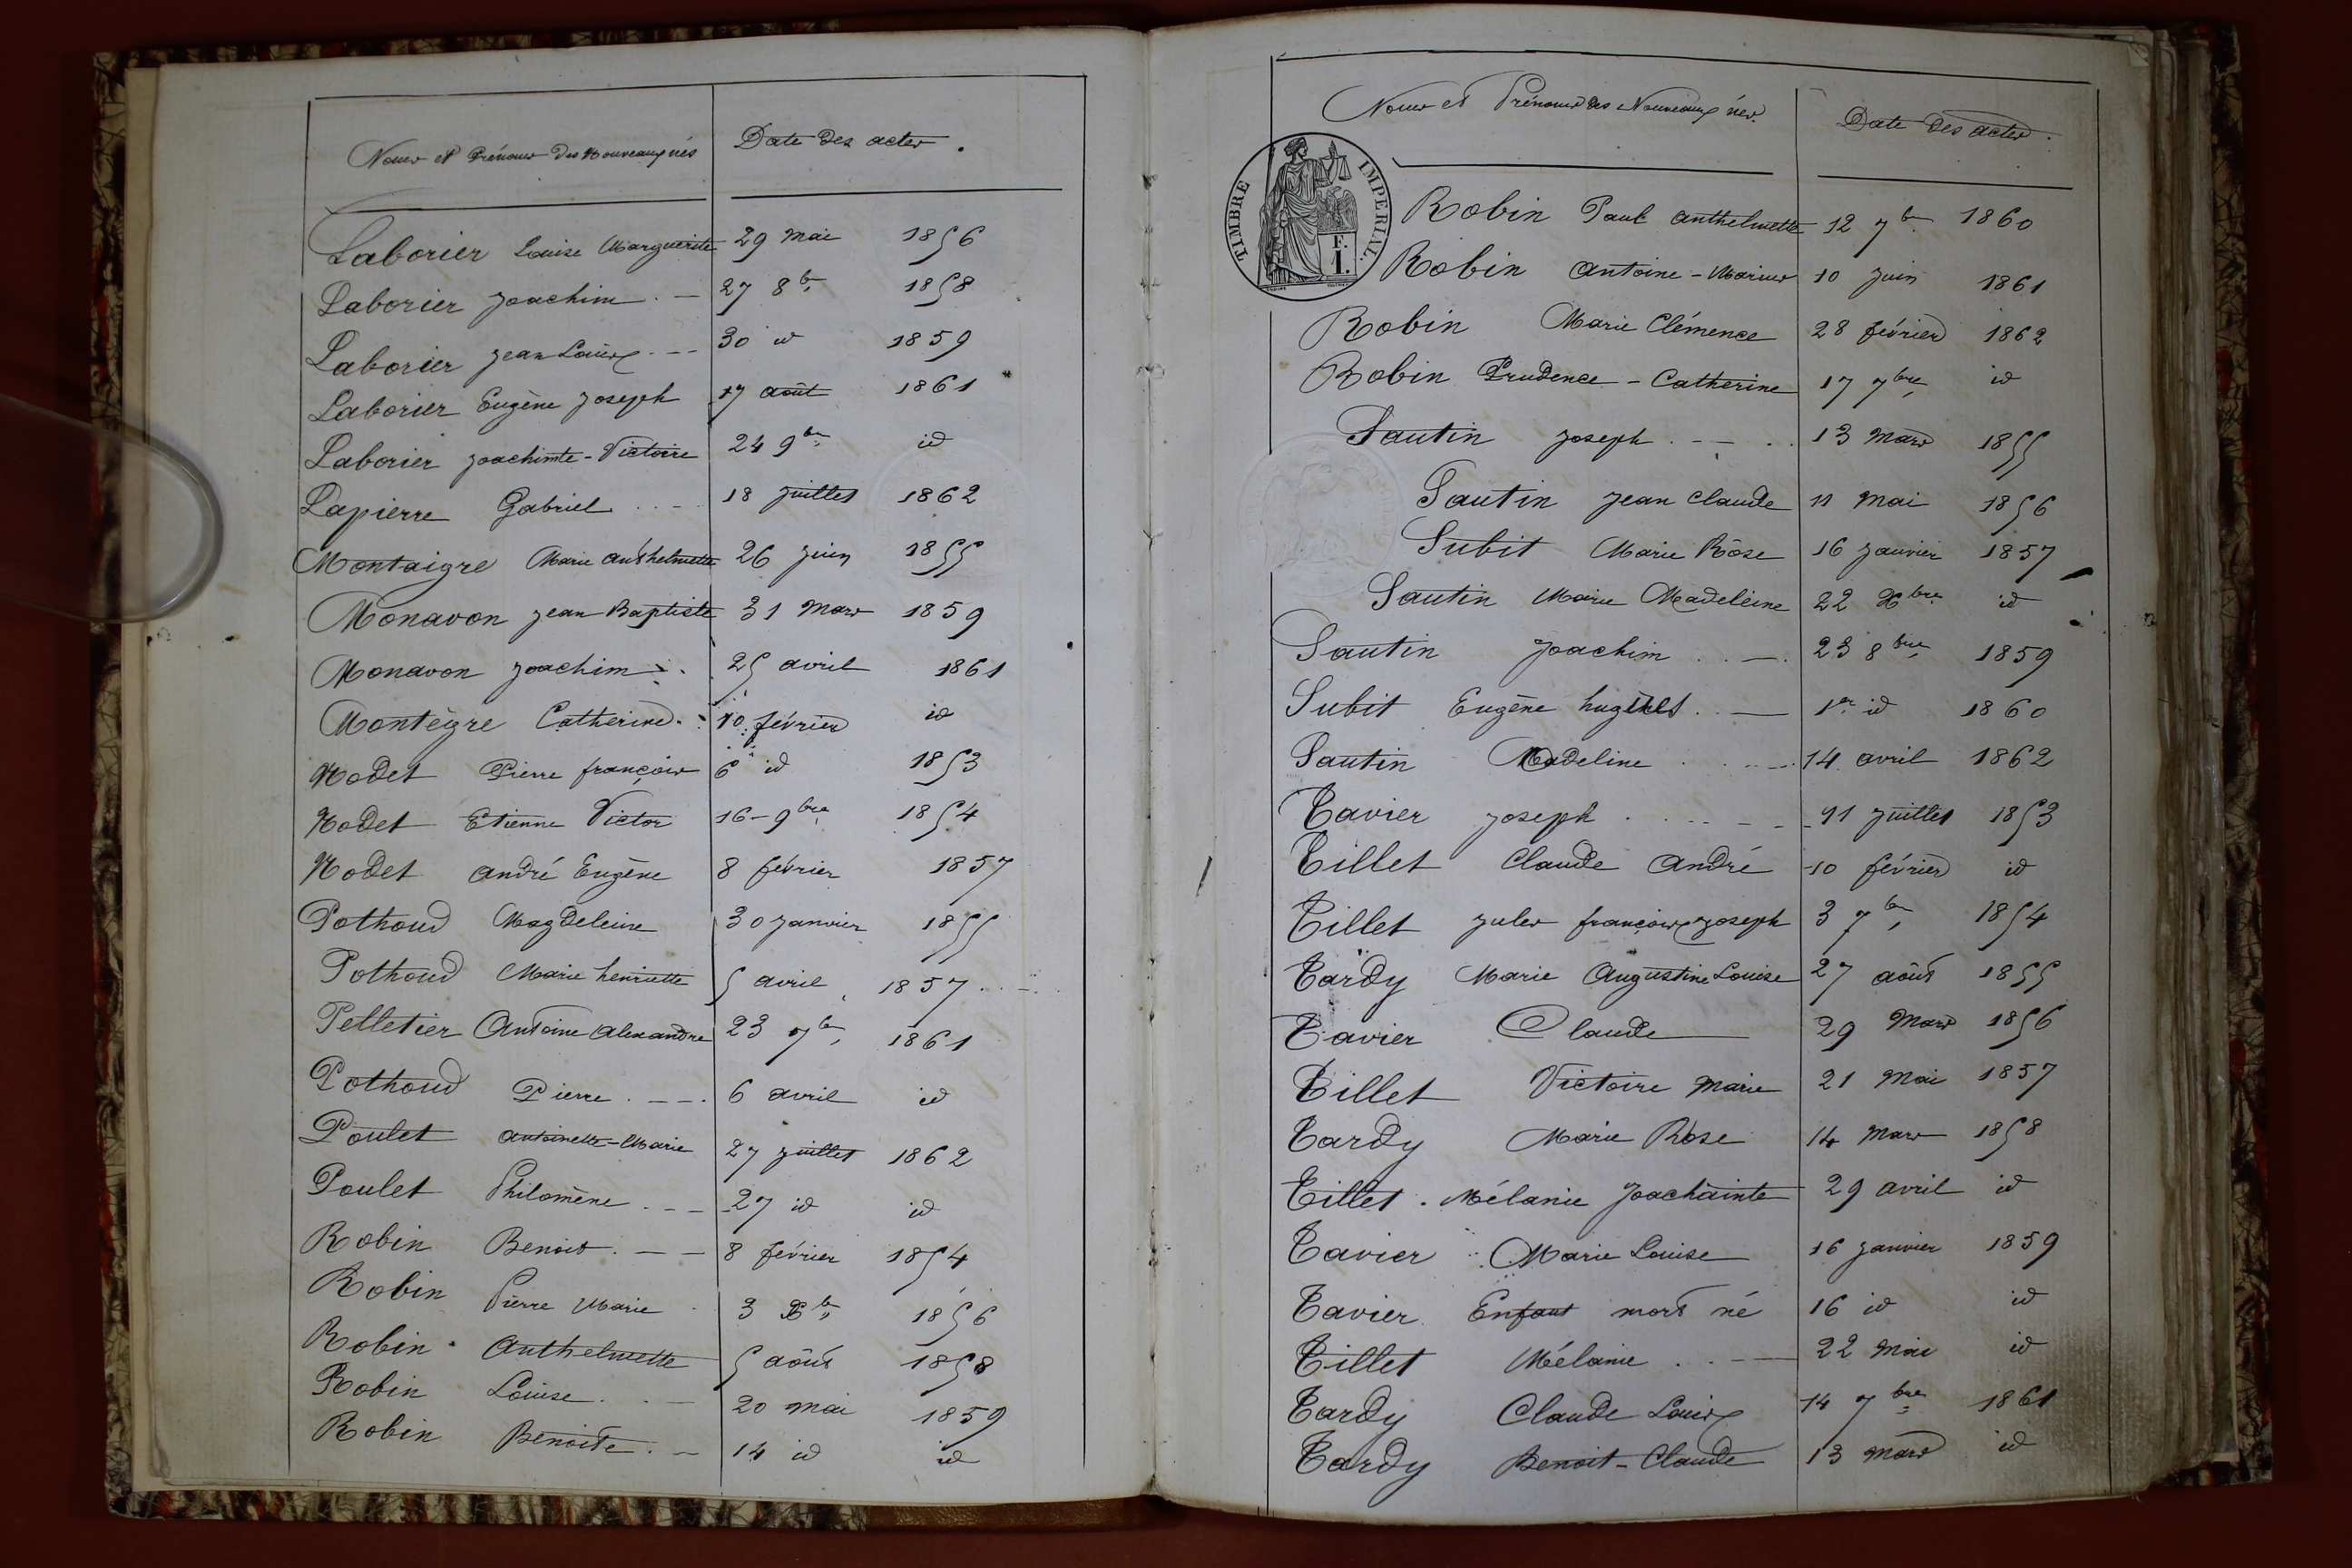 Noms et Prénoms des Nouveaux nés Date des actes.
Laborier Louise Marguerite 29 mai 1856
Laborier Joachim . — 27 8bre 1858
Laborier Jean Louis . — 30 id 1859
Laborier Eugène Joseph 17 août 1861
Laborier Joachimte - Victoire 24 9bre id
Lapierre Gabriel . . . - 18 juillet 1862
Montaigre Marie Anthelmette 26 juin 1855
Monavon Jean Baptiste 31 mars 1859
Monavon Joachim . . 25 avril 1861
Montègre Catherine . 10 février id
Nodet Pierre françois 6 id 1853
Nodet Etienne Victor 16 - 9bre 1854
Nodet André Eugène 8 février 1857
Pothoud Magdeleine 30 janvier 1855
Pothoud Marie henriette 5 avril 1857
Pelletier Antoine Alexandre 23 7bre 1861
Pothoud Pierre . — . 6 avril id
Poulet Antoinette - Marie 27 juillet 1862
Poulet Philomène . . — 27 id id
Robin Benoit . — — 8 février 1854
Robin Pierre Marie 3 Xbre 1856
Robin Anthelmette 5 août 1858
Robin Louise . . — 20 mai 1859
Robin Benoite . — 14 id id
Noms et Prénoms des Nouveaux nés. Date des actes.
TIMBRE IMPÉRIAL.
F.
1.
Robin Paul Anthelmette 12 7bre 1860
Robin Antoine - Marius 10 juin 1861
Robin Marie Clémence 28 février 1862
Robin Prudence - Catherine 17 7bre id
Sautin Joseph . — . . 13 mars 1855
Sautin Jean Claude 11 mai 1856
Subit Marie Rose 16 janvier 1857
Sautin Marie Madeleine 22 Xbre id
Sautin Joachim . . — . 23 8bre 1859
Subit Eugène hugues . . — 1er id 1860
Sautin Madeline . . . — 14 avril 1862
Tavier Joseph . . . — - 11 juillet 1853
Tillet Claude André 10 février id
Tillet Jules françois Joseph 3 7bre 1854
Tardy Marie Augustine Louise 27 août 1855
Tavier Claude — 29 mars 1856
Tillet Victoire Marie 21 mai 1857
Tardy Marie Rose 14 mars 1858
Tillet . Mélanie Joachainte 29 avril id
Tavier Marie Louise 16 janvier 1859
Tavier Enfant mort né 16 id id
Tillet Mélanie . . — 22 mai id
Tardy Claude Louis 14 7bre 1861
Tardy Benoit - Claude 13 mars id